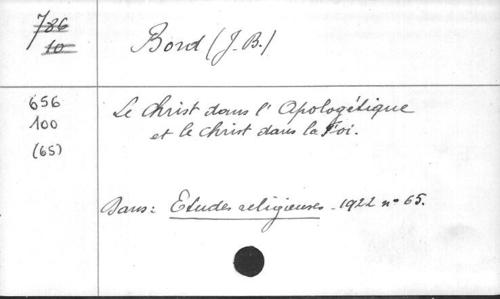 786
10
Bord (J.B.)
656
100
(65)
Le Christ dans l'Apologétique
et le Christ dans la Foi.
Dans: Etudes religieuses - 1922 n° 65.